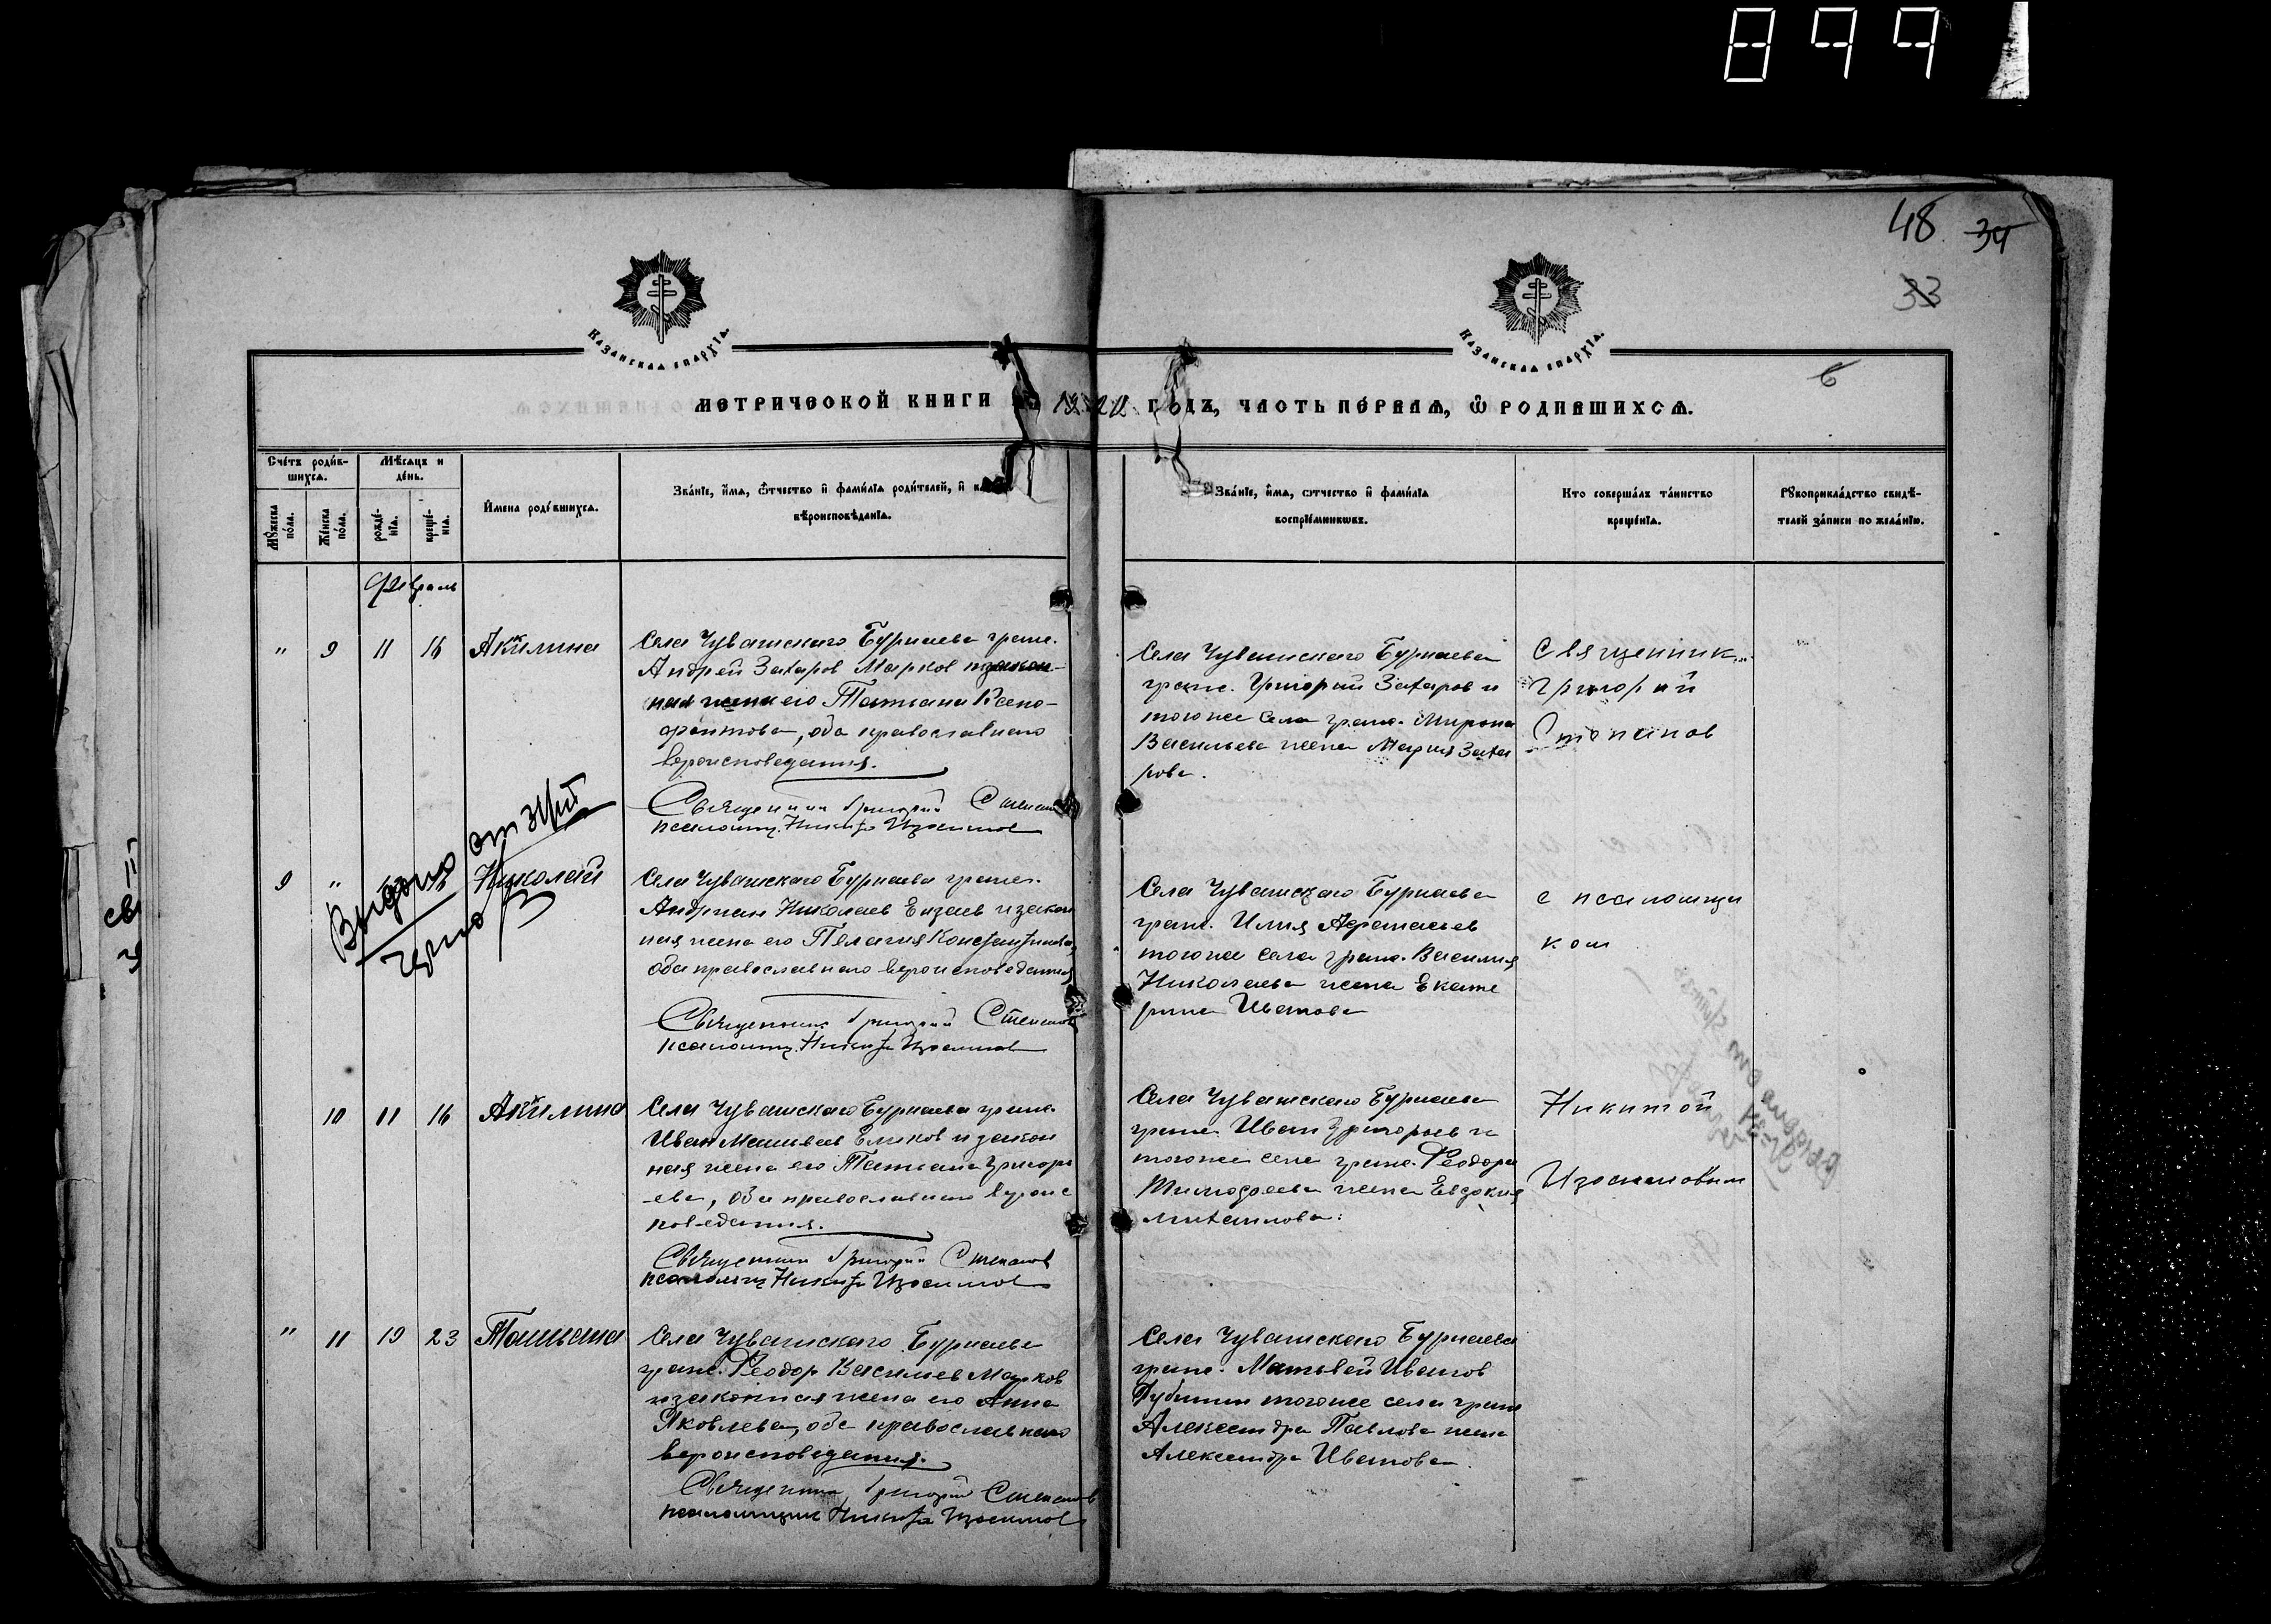 899
48 34
33
6
КАЗАНСКАЯ ЕПАРХІЯ.
КАЗАНСКАЯ ЕПАРХІЯ.
МЕТРИЧЕСКОЙ КНИГИ 1920 ГОДЪ, ЧАСТЬ ПЕРВАЯ, Ѿ РОДИВШИХСѦ.
Счетъ родив-
шихся.
Мѣсяцъ и
день.
Мужеска пола.
Женска пола.
рожде-
нія.
креще-
нія.
Имена родившихся.
Званіе, имя, ѿтчество и фамилія родителей, и
вѣроисповѣданія.
Званіе, имя, отчество и фамилія
воспріемниковъ.
Кто совершалъ таинство
крещенія.
Рукоприкладство свидѣ-
телей записи по желанію.
Февраль
" 9 11 16 Акилина
Села Чувашскаго Бурнаева граж.
Андрей Захаров Марков и закон-
ная жена его Татьяна Ксено-
фонтова, оба православнаго
вероисповедания.
Священник Григорий Степанов
псаломщ. Никита Изосимов
Села Чувашскаго Бурнаева
граж. Григорий Захаров и
тогоже села граж. Мирона
Васильева жена Мария Заха
рова.
Священник
Григорий
Степанов
Выдано
9 " Николай
Села Чувашскаго Бурнаева граж.
Андриан Николаев Ензаев и закон
ная жена его Пелагия Константинова,
оба православнаго вероисповедания
Священник Григорий Степанов
псаломщ. Никита Изосимов
Села Чувашскаго Бурнаева
граж. Илия Афанасьев
тогоже села граж. Василия
Николаева жена Екате
рина Иванова
с псаломщи
ком
10 11 16 Акилина
Села Чувашскаго Бурнаева граж.
Иван Матвеев Еликов и закон
ная жена его Татьяна Григорь
ева, оба православнаго вероис
поведания.
Священник Григорий Степанов
псаломщ Никита Изосимов
Села Чувашскаго Бурнаева
граж. Иван Григорьев и
тогоже села граж. Феодора
Тимофеева жена Евдокия
Михаилова.
Никитой
Изосимовым
" 11 19 23 Татьяна
Села Чувашскаго Бурнаева
граж. Феодор Васильев Марков
и законная жена его Анна
Яковлева, оба православнаго
вероисповедания.
Священник Григорий Степанов
псаломщик Никита Изосимов
Села Чувашскаго Бурнаева
граж. Матвей Иванов
тогоже села граж
Александра Павлова жена
Александра Иванова.